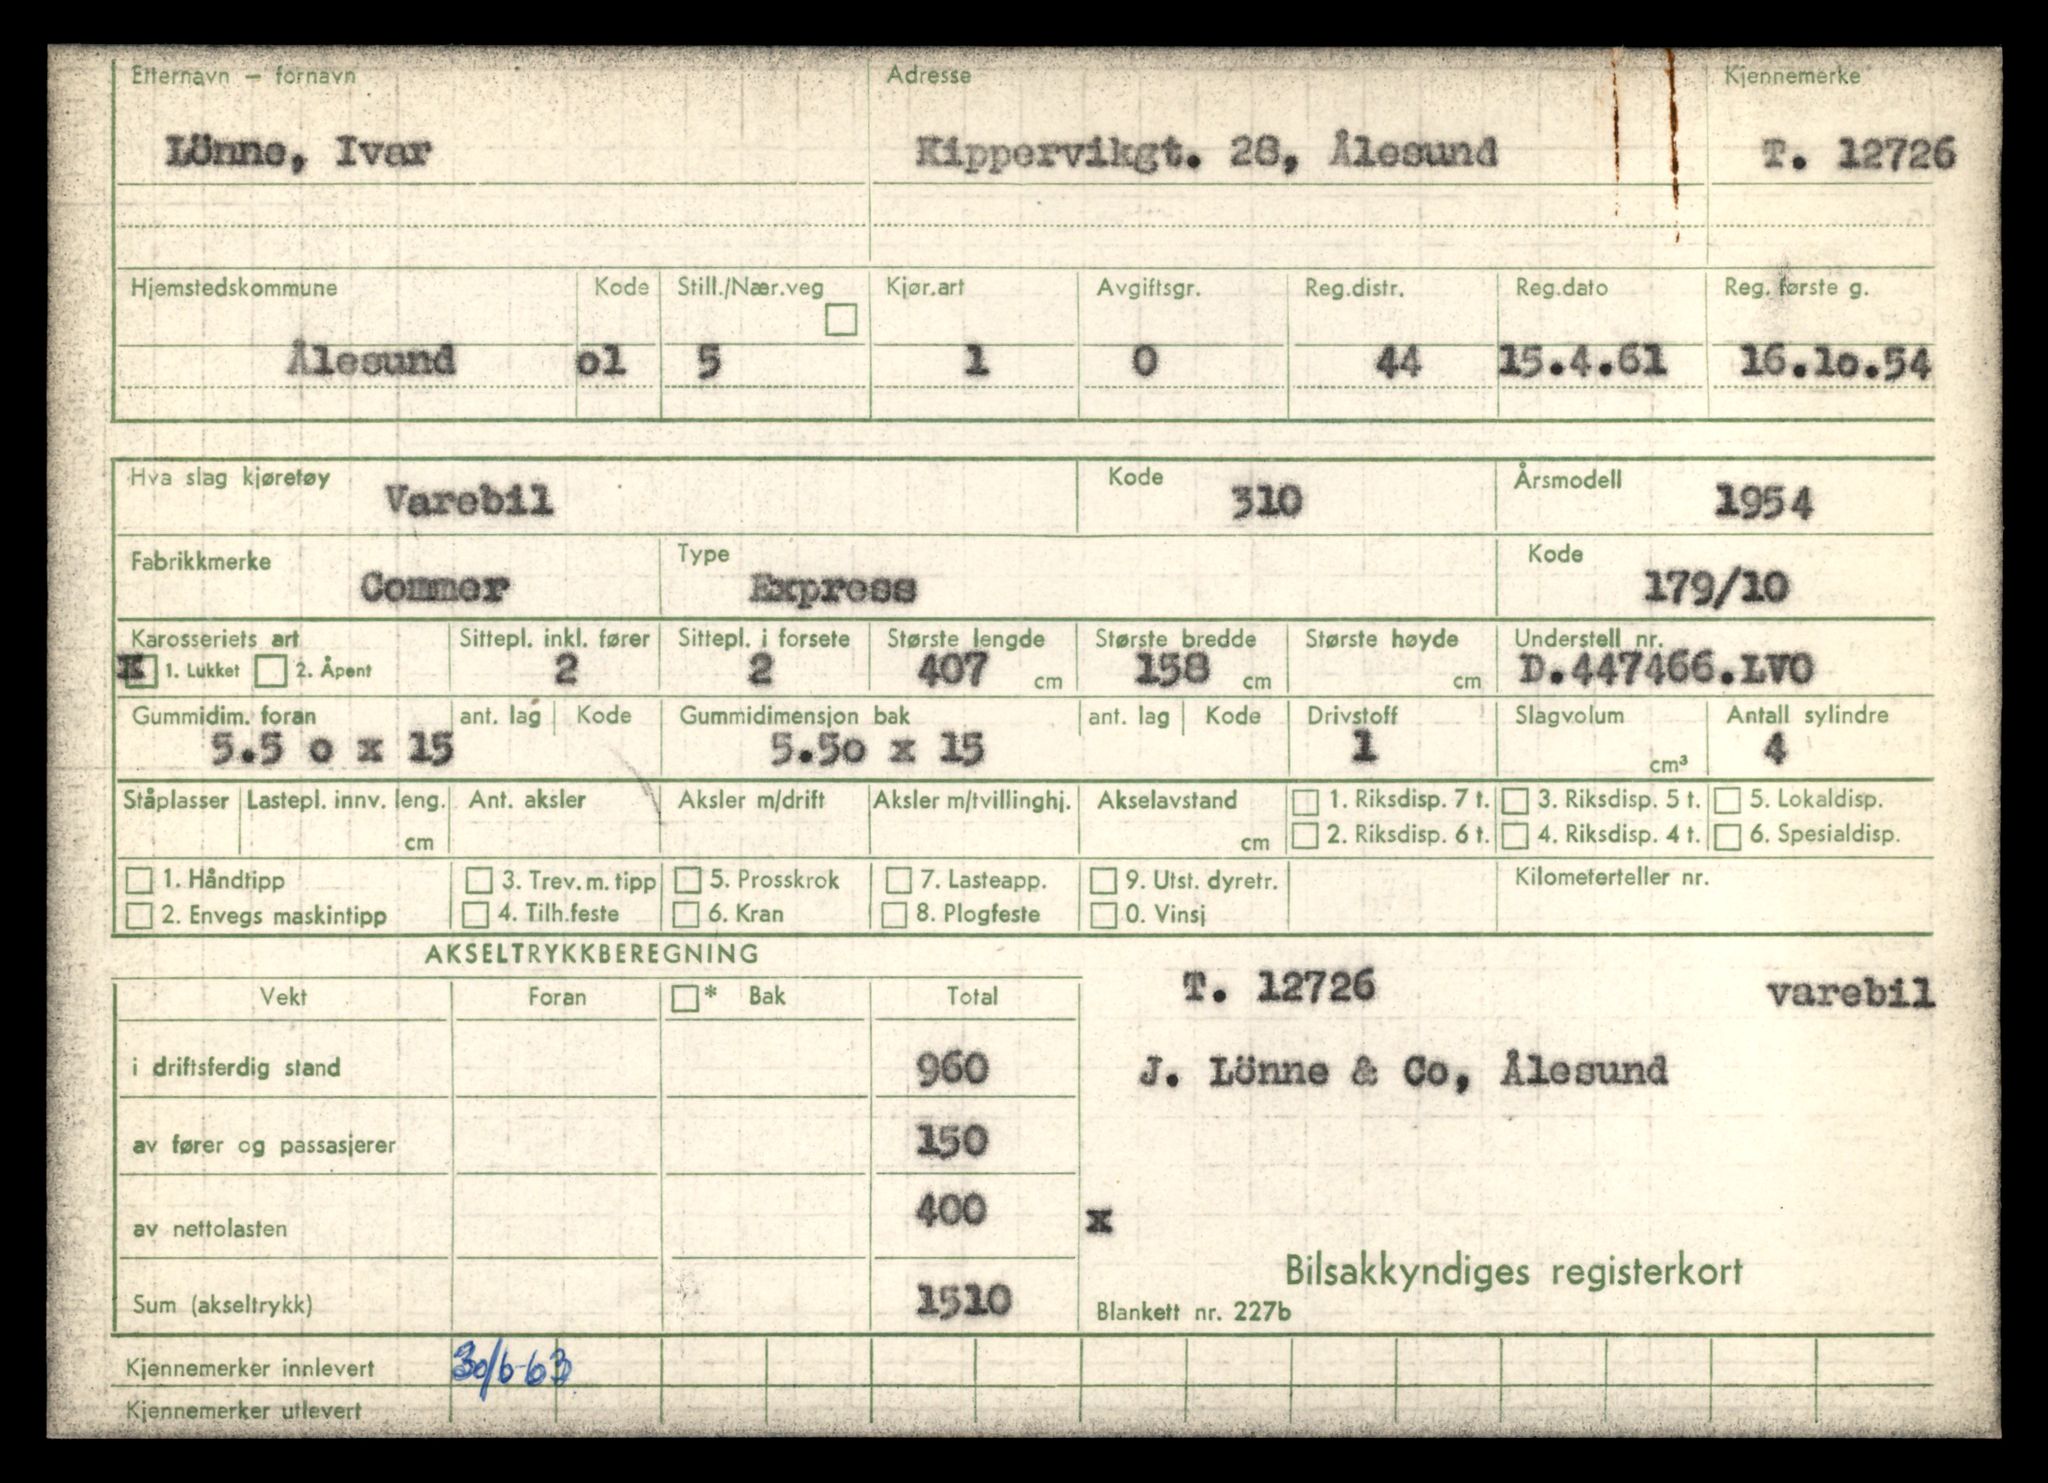 Etternavn – fornavn Adresse Kjennemerke
Lönne, Ivar Kippervikgt. 28, Ålesund T. 12726
Hjemstedskommune Kode Still./Nær.veg Kjør.art Avgiftsgr. Reg.distr. Reg.dato Reg. første g.
Ålesund o1 5 1 0 44 15.4.61 16.1o.54
Hva slag kjøretøy Varebil Kode 310 Årsmodell 1954
Fabrikkmerke Commer Type Express Kode 179/10
Karosseriets art Sittepl. inkl. fører Sittepl. i forsete Største lengde Største bredde Største høyde Understell nr.
x 1. Lukket 2. Åpent 2 2 407 cm 158 cm cm D.447466.LVO
Gummidim. foran ant. lag Kode Gummidimensjon bak ant. lag Kode Drivstoff Slagvolum Antall sylindre
5.5 o x 15 5.5o x 15 1 cm³ 4
Ståplasser Lastepl. innv. leng. Ant. aksler Aksler m/drift Aksler m/tvillinghj. Akselavstand 1. Riksdisp. 7 t. 3. Riksdisp. 5 t. 5. Lokaldisp.
cm cm 2. Riksdisp. 6 t. 4. Riksdisp. 4 t. 6. Spesialdisp.
1. Håndtipp 3. Trev. m. tipp 5. Prosskrok 7. Lasteapp. 9. Utst. dyretr. Kilometerteller nr.
2. Envegs maskintipp 4. Tilh.feste 6. Kran 8. Plogfeste 0. Vinsj
AKSELTRYKKBEREGNING
Vekt Foran * Bak Total T. 12726 varebil
i driftsferdig stand 960 J. Lönne & Co, Ålesund
av fører og passasjerer 150
av nettolasten 400 x
Bilsakkyndiges registerkort
Sum (akseltrykk) 1510 Blankett nr. 227b
Kjennemerker innlevert 30/6-63
Kjennemerker utlevert